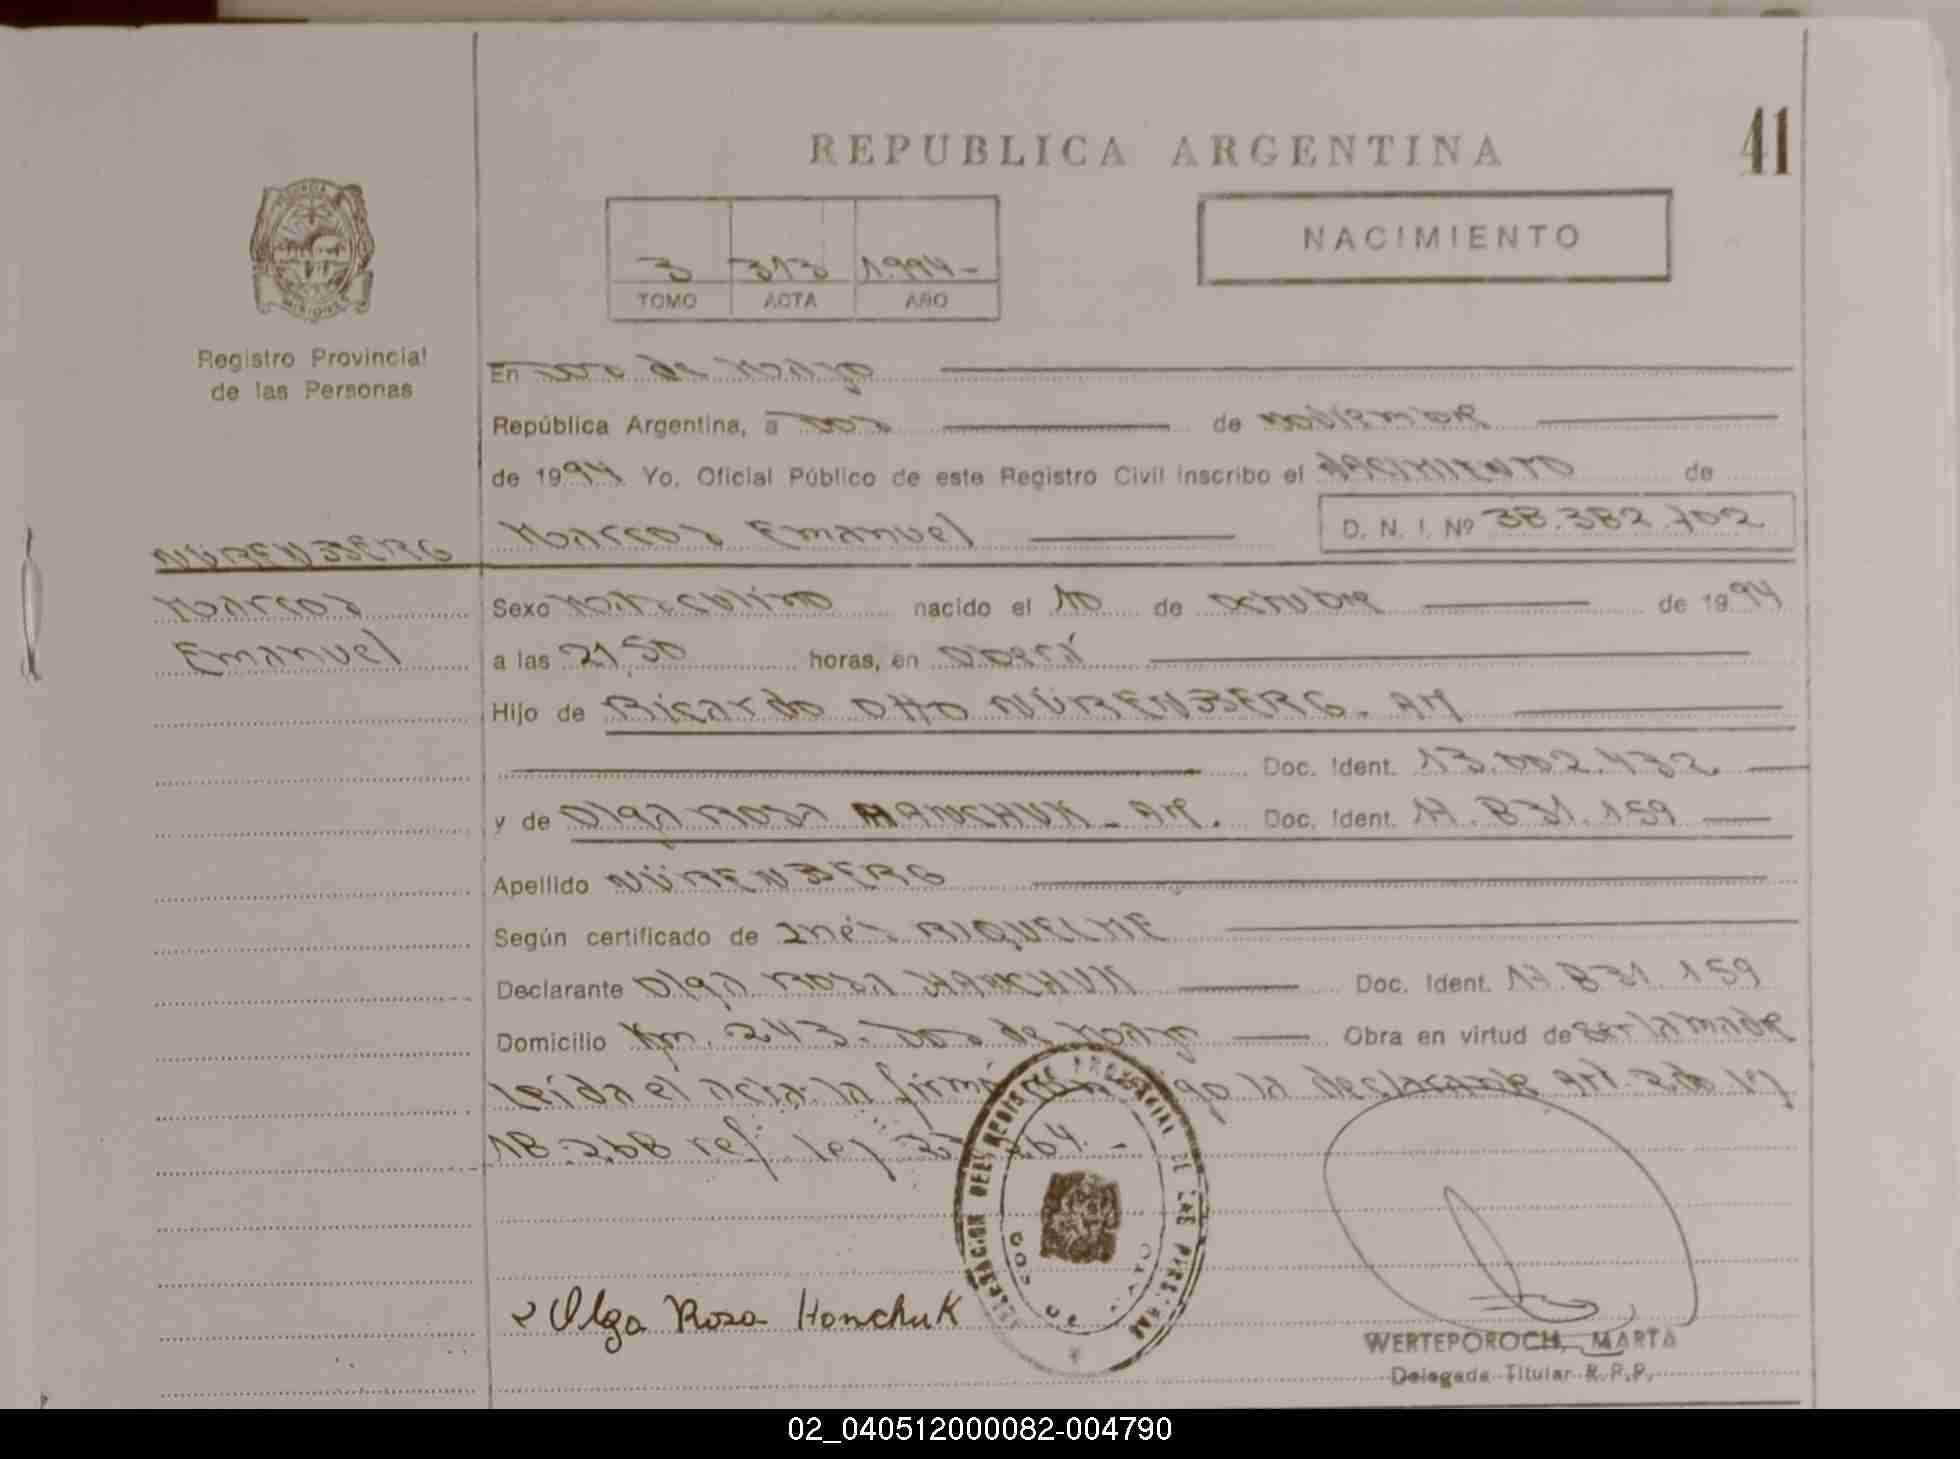 REPUBLICA ARGENTINA
41
NACIMIENTO
3 313 1.994-
TOMO ACTA AÑO
Registro Provincial
de las Personas
En Dos de Mayo
República Argentina, a dos de noviembre
de 1994 Yo, Oficial Público de este Registro Civil inscribo el NACIMIENTO de
Marcos Emanuel D. N. I. Nº 38.382.702
NÜRENBERG
Marcos
Emanuel
Sexo Masculino nacido el 10 de octubre de 1994
a las 21,50 horas, en Oberá
Hijo de Ricardo Otto NÜRENBERG - Arg
Doc. Ident. 13.002.432
y de Olga Rosa HANCHUK - Arg. Doc. Ident. 14.831.159
Apellido NÜRENBERG
Según certificado de Inés RIQUELME
Declarante Olga Rosa HANCHUK Doc. Ident. 14.831.159
Domicilio Km. 243. Dos de Mayo Obra en virtud de ser la madre
Leída el acta la firma conmigo la declarante Art. 2do ley
18.268 ref. ley
DELEGACION DEL REGISTRO PROVINCIAL DE LAS PERSONAS
DOS DE MAYO
Olga Rosa Hanchuk
WERTEPOROCH, MARTA
Delegada Titular R.P.P.
02_040512000082-004790